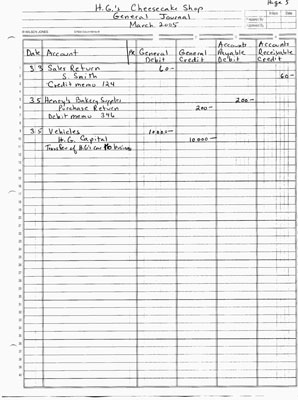 Page 5
H.G.'s Cheesecake Shop
General Journal
March 2005
WILSON JONES
Date Account PR General Debit General Credit Accounts Payable Debit Accounts Receivable Credit
3 3 Sales Return 60-
S. Smith 60-
Credit memo 124
3 5 Henery's Bakery Supplies 200-
Purchase Return 200-
Debit memo 346
3 5 Vehicles 10,000-
H.G. Capital 10,000-
Transfer of HG's car to business